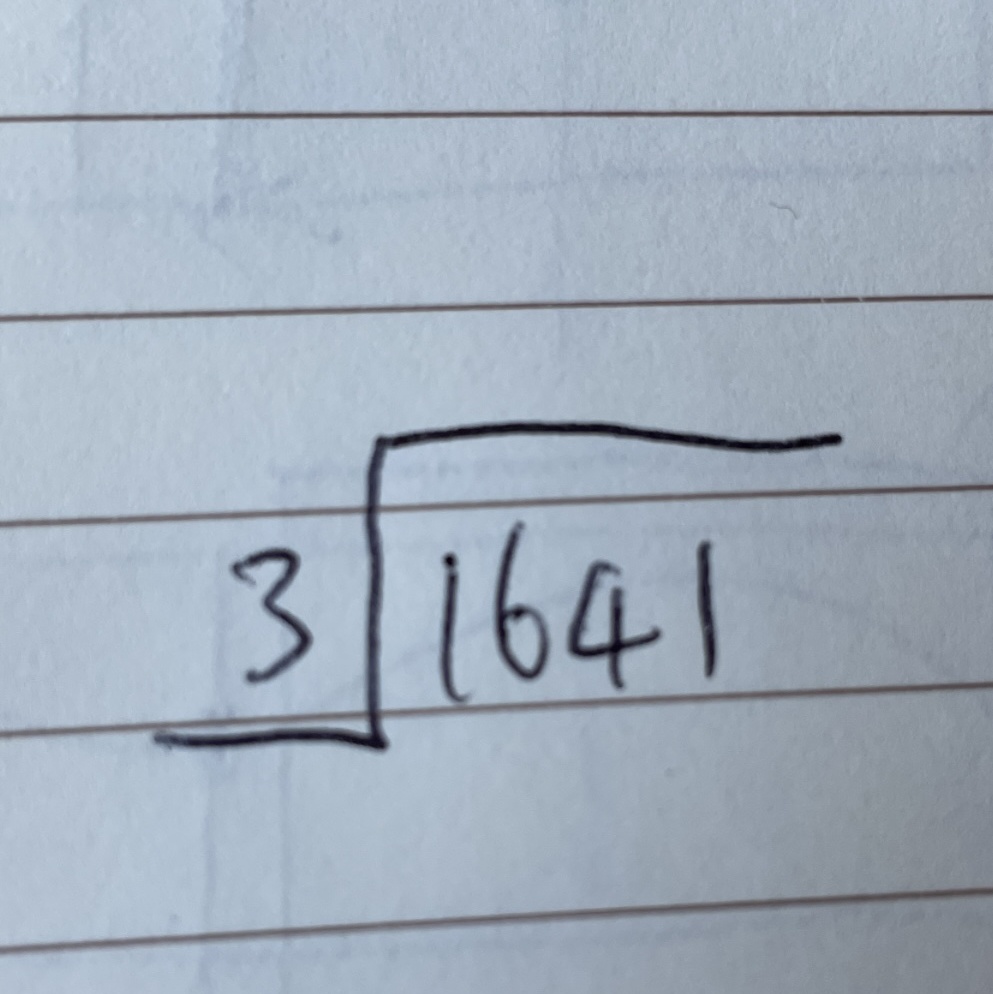 3 1641